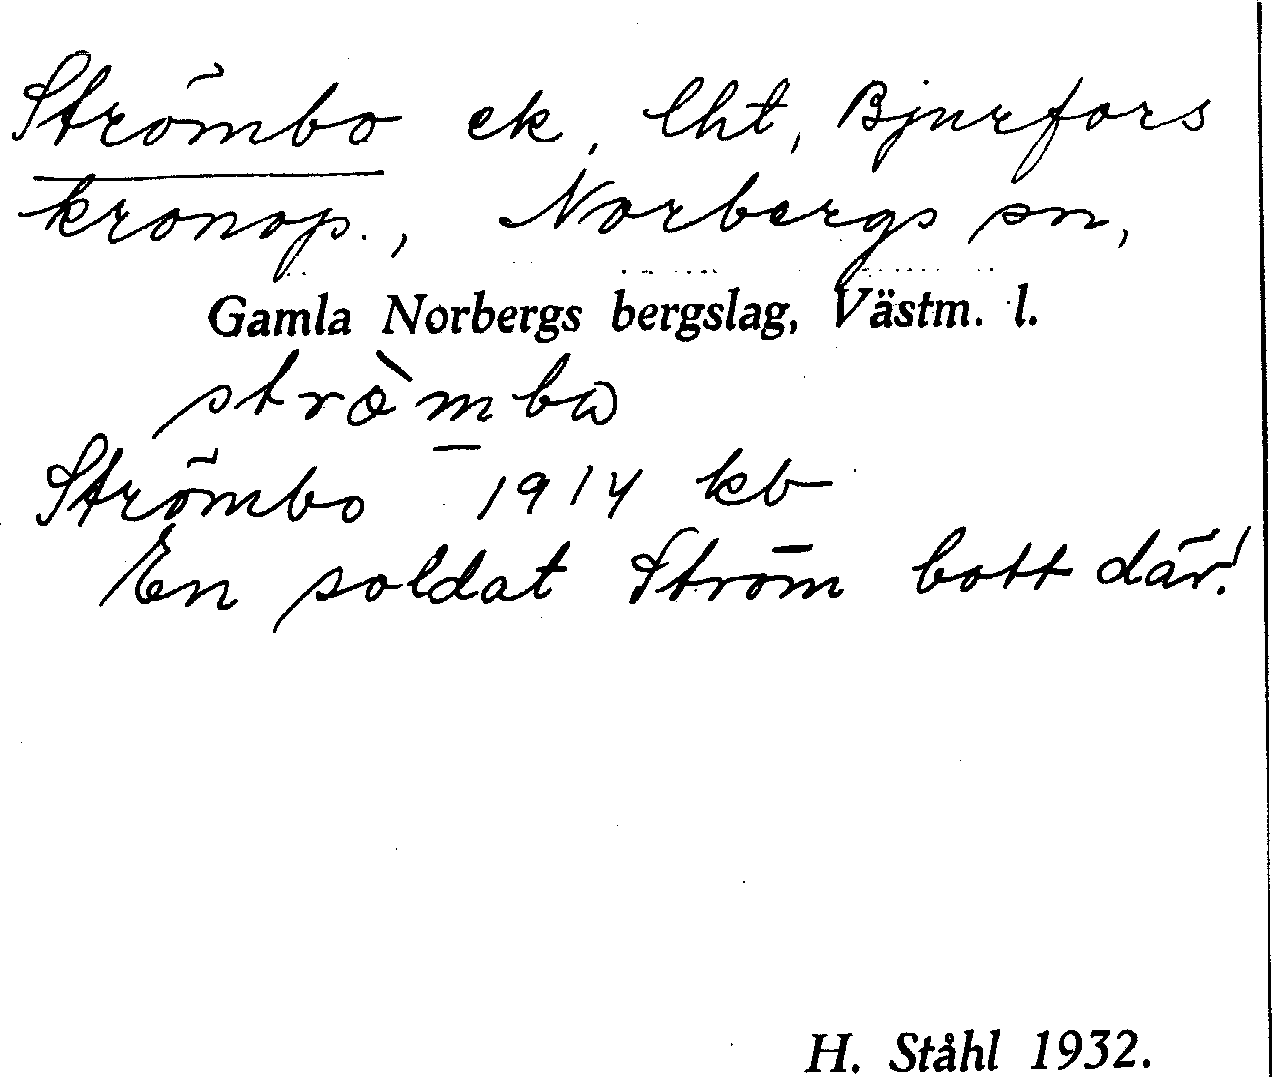 Strömbo ek, lht, Bjurfors
kronop., Norbergs sn,
Gamla Norbergs bergslag, Västm. l.
strò̀m̲bω
Strömbo 1914 kb
En soldat Ström bott där!
H. Ståhl 1932.